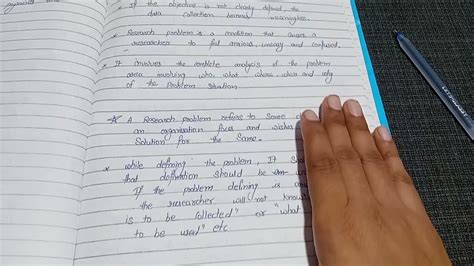 If the objective is not clearly defined, the
data collection becomes meaningless.
Research problem is a condition that causes a
researcher to feel anxious, uneasy and confused.
It involves the complete analysis of the problem
area involving who, what, where, when and why
of the problem situation.
A Research problem refers to some
an organisation faces and wishes
Solution for the Same.
while defining the problem, It
that definition should be
If the problem defining is
the researcher will not know
is to be collected" or "what
to be used" etc